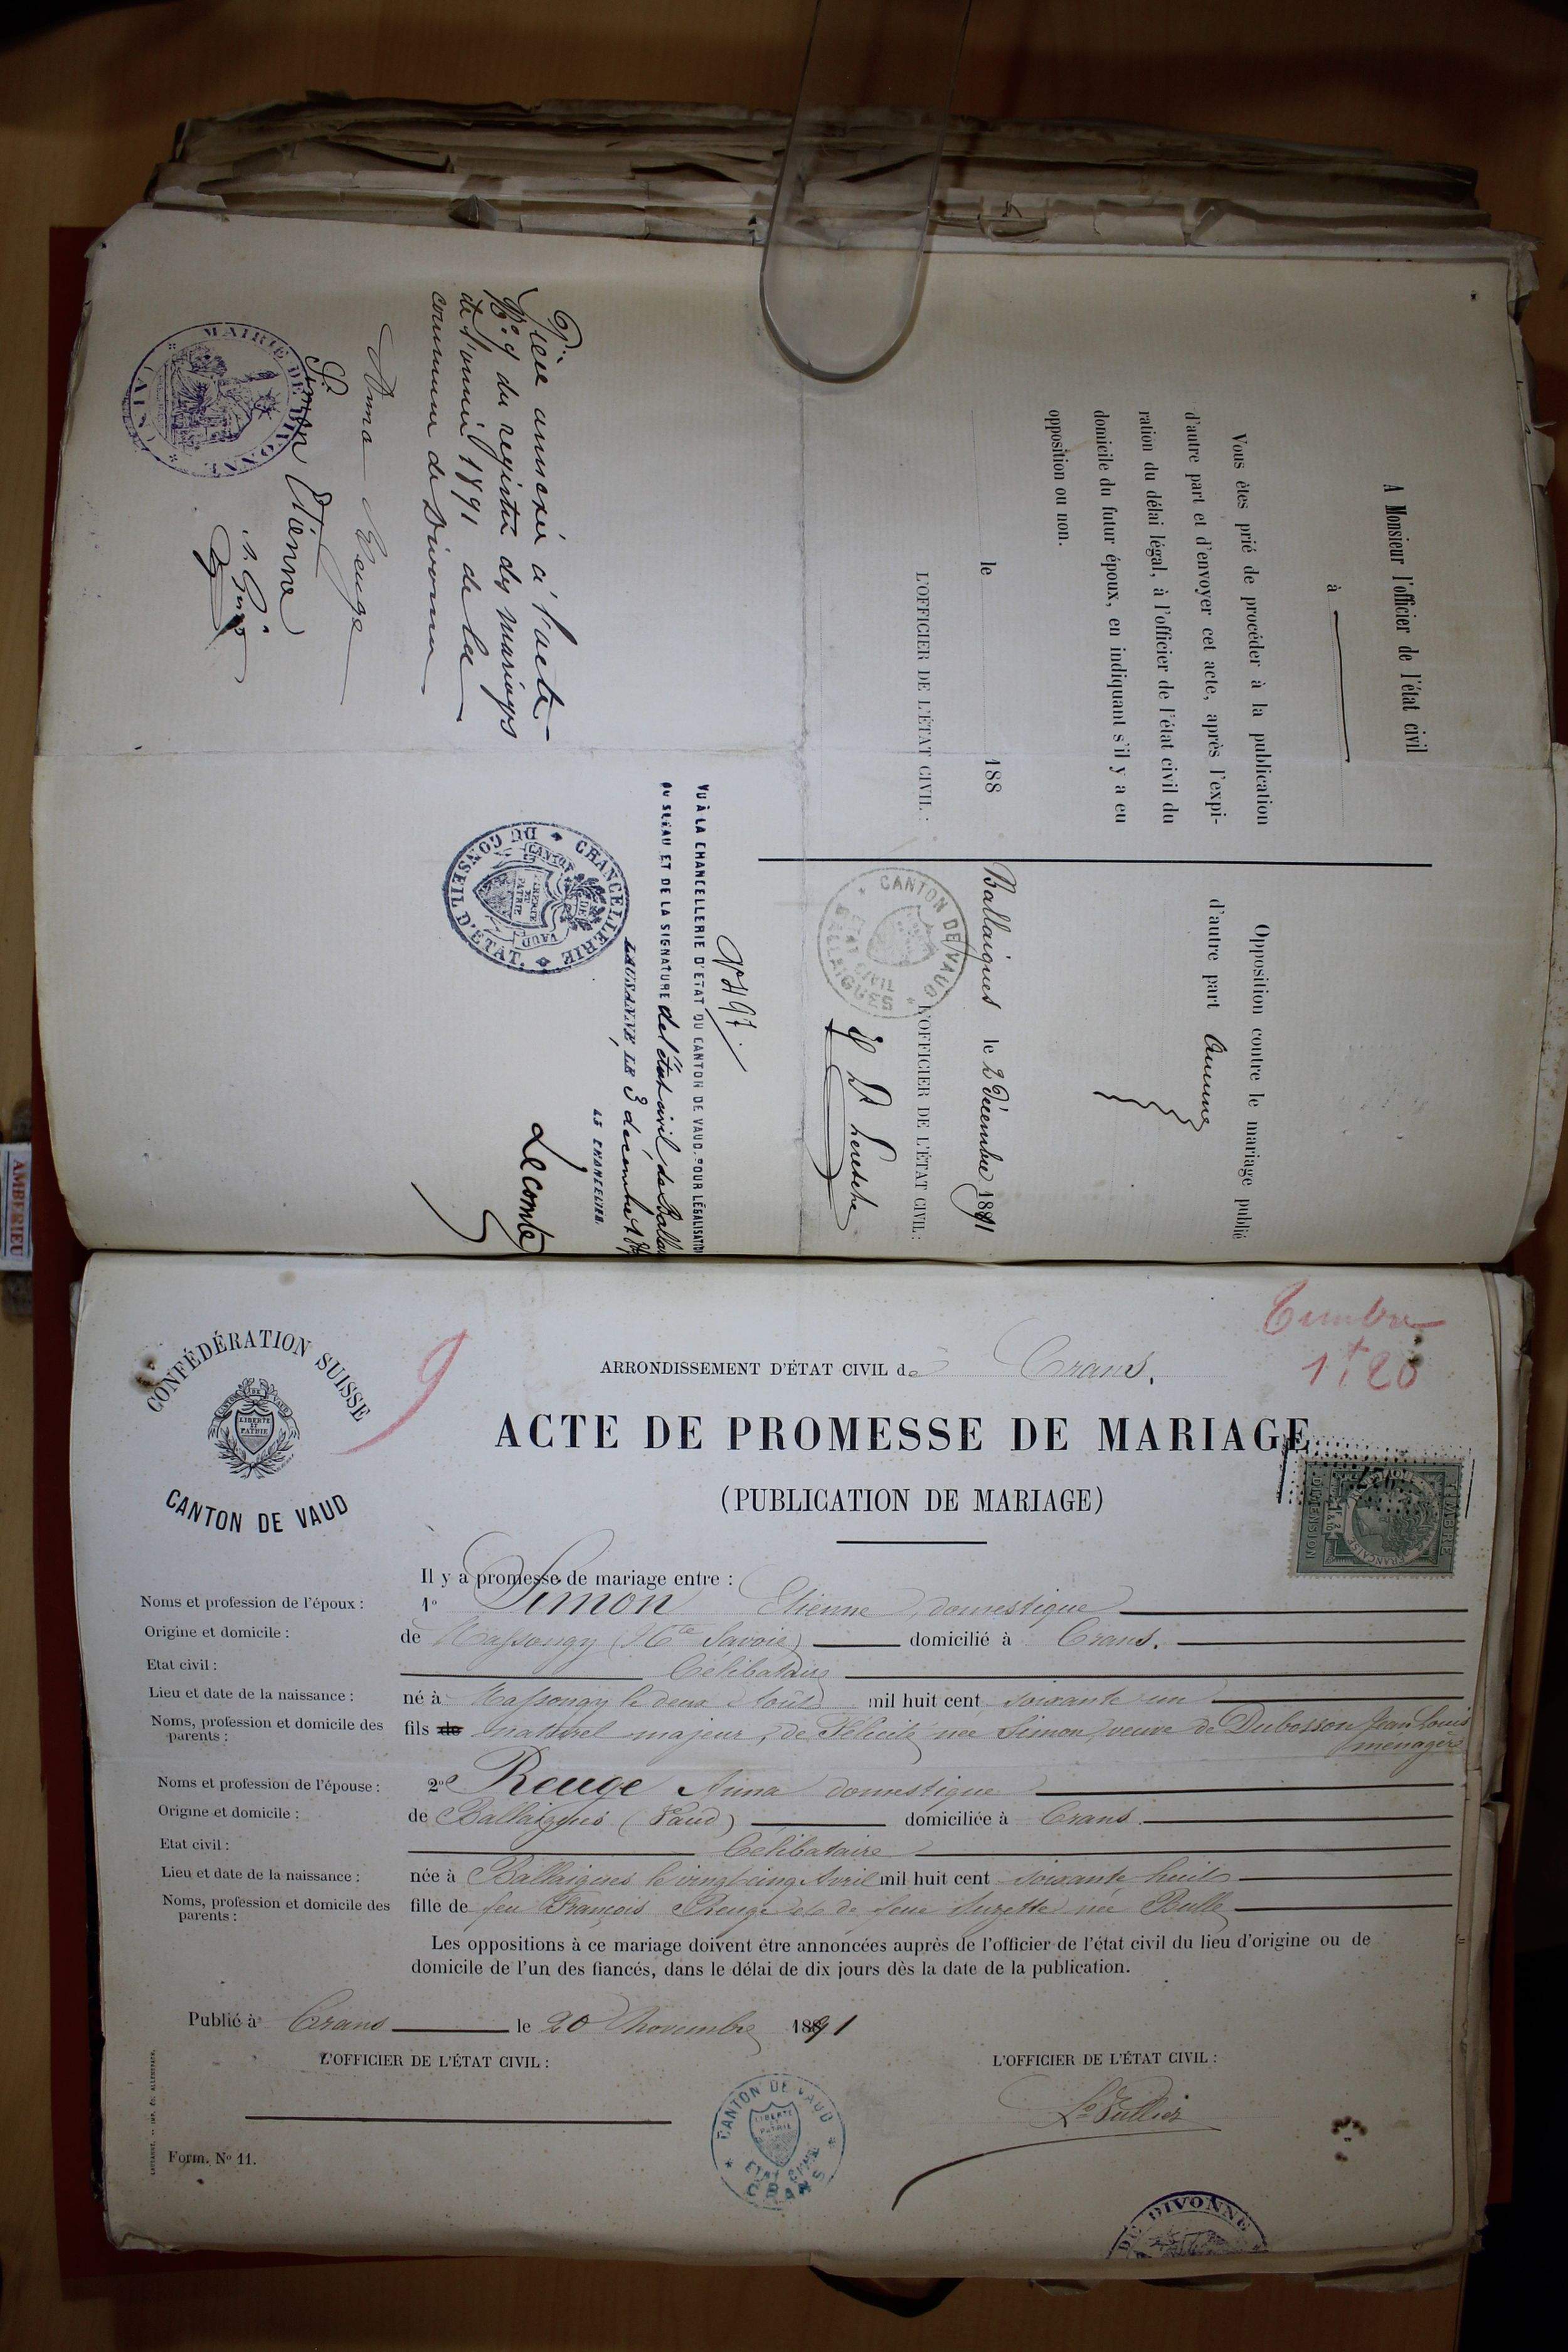 A Monsieur l'officier de l'état civil
à
Vous êtes prié de procéder à la publication
d'autre part et d'envoyer cet acte, après l'expi-
ration du délai légal, à l'officier de l'état civil du
domicile du futur époux, en indiquant s'il y a eu
opposition ou non.
le 188
L'OFFICIER DE L'ÉTAT CIVIL :
Opposition contre le mariage publié
d'autre part Aucune
Ballaigues le 2 Décembre 1891
L'OFFICIER DE L'ÉTAT CIVIL :
CANTON DE VAUD
ETAT CIVIL
BALLAIGUES
VU À LA CHANCELLERIE D'ÉTAT DU CANTON DE VAUD, POUR LÉGALISATION
DU SCEAU ET DE LA SIGNATURE de l'état civil de Ballai
LAUSANNE, LE 3 décembre 189
LE CHANCELIER.
Lecomte
CHANCELLERIE DU CONSEIL D'ÉTAT.
CANTON DE VAUD
LIBERTÉ ET PATRIE
Pièce annexée à l'acte
No 9 du registre des mariages
de l'année 1891 de la
commune de Divonne
Anna Reuge
Simon Etienne
MAIRIE DE DIVONNE (AIN)
AMBERIEU
CONFÉDÉRATION SUISSE
LIBERTÉ ET PATRIE
CANTON DE VAUD
9
Timbre
1f 20
ARRONDISSEMENT D'ÉTAT CIVIL de Crans.
ACTE DE PROMESSE DE MARIAGE
(PUBLICATION DE MARIAGE)
TIMBRE
DIMENSION
Il y a promesse de mariage entre :
Noms et profession de l'époux : 1° Simon Etienne, domestique
Origine et domicile : de Massongy (Hte Savoie) domicilié à Crans.
Etat civil : Célibataire
Lieu et date de la naissance : né à Massongy le deux Août mil huit cent soixante un
Noms, profession et domicile des parents : fils de naturel majeur, de Félicité née Simon, veuve de Dubosson Jean Louis
ménagère
Noms et profession de l'épouse : 2° Reuge Anna domestique
Origine et domicile : de Ballaigues (Vaud) domiciliée à Crans.
Etat civil : Célibataire
Lieu et date de la naissance : née à Ballaigues le vingt cinq Avril mil huit cent soixante huit
Noms, profession et domicile des parents : fille de feu François Reuge et de feue Suzette née Bulle
Les oppositions à ce mariage doivent être annoncées auprès de l'officier de l'état civil du lieu d'origine ou de
domicile de l'un des fiancés, dans le délai de dix jours dès la date de la publication.
Publié à Crans le 20 Novembre 1891
L'OFFICIER DE L'ÉTAT CIVIL :
L'OFFICIER DE L'ÉTAT CIVIL :
CANTON DE VAUD
LIBERTÉ ET PATRIE
ETAT CIVIL
CRANS
Form. No 11.
DE DIVONNE